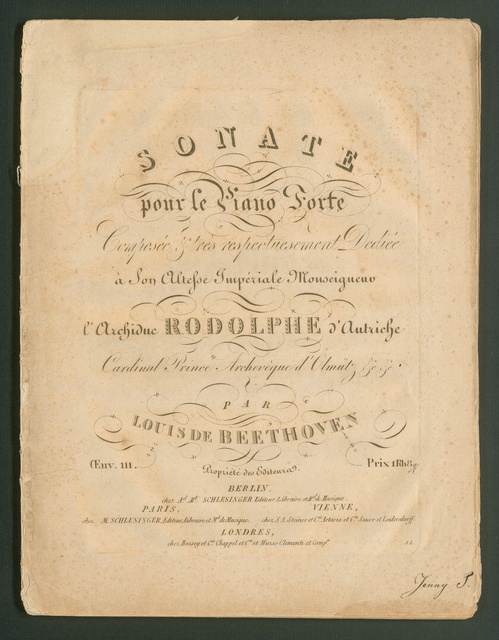 SONATE
pour le Piano Forte
Composée & très respectueusement Dediée
à Son Altesse Impériale Monseigneur
l'Archiduc RODOLPHE d'Autriche
Cardinal Prince Archevêque d'Olmütz &c. &c.
PAR
LOUIS DE BEETHOVEN
Œuv. 111. Prix
Propriété des Editeurs.
BERLIN,
chez Ad. Mt. SCHLESINGER Editeur Libraire et Md. de Musique.
PARIS, VIENNE,
chez M. SCHLESINGER, Editeur, Libraire et Md. de Musique. chez S. A. Steiner et Co. Artaria et Co. Sauer et Leidesdorf.
LONDRES,
chez Boosey et Co. Chappel et Co. et Muzio Clementi et Comp.
Jenny S.